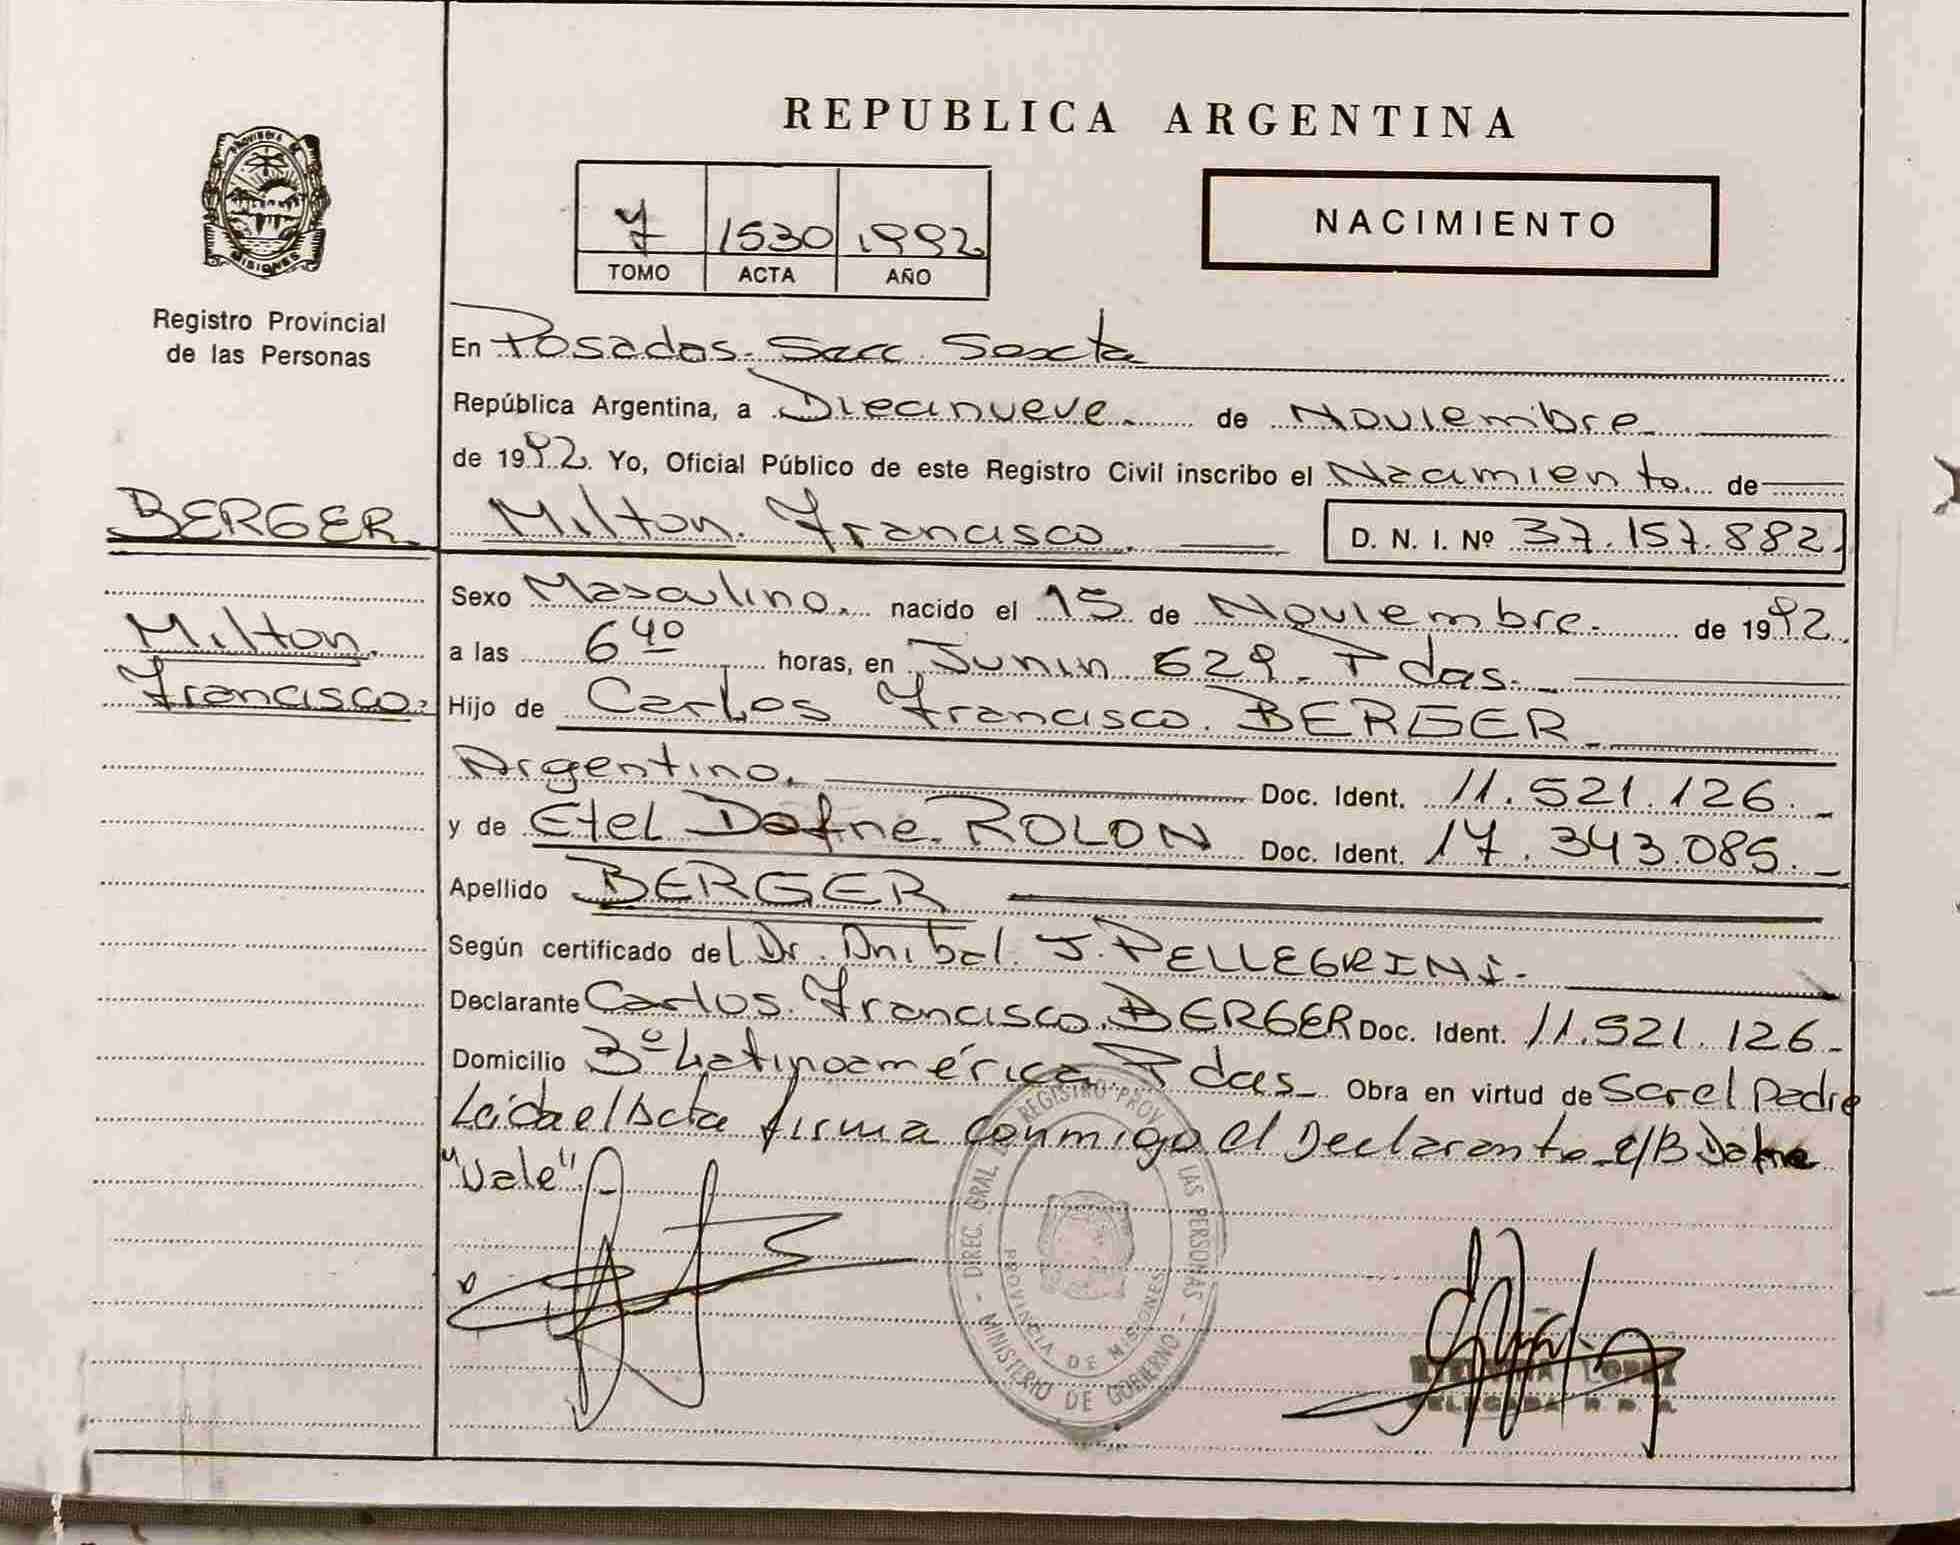 PROVINCIA DE
MISIONES
Registro Provincial
de las Personas
BERGER.
Milton.
Francisco.
REPUBLICA ARGENTINA
7 1530 1992
TOMO ACTA AÑO
NACIMIENTO
En Posadas. Secc. Sexta
República Argentina, a Diecinueve. de Noviembre
de 1992. Yo, Oficial Público de este Registro Civil inscribo el Nacimiento. de
Milton. Francisco. D. N. I. Nº 37.157.882.
Sexo Masculino. nacido el 15 de Noviembre. de 1992.
a las 6 40 horas, en Junin 629. Pdas.
Hijo de Carlos Francisco. BERGER
Argentino. Doc. Ident. 11.521.126.
y de Etel Dafne. ROLON Doc. Ident. 17.343.085.
Apellido BERGER
Según certificado del Dr. Anibal J. PELLEGRINI.
Declarante Carlos Francisco. BERGER Doc. Ident. 11.521.126
Domicilio 3º Latinoamérica Pdas Obra en virtud de Ser el Padre
Leida el Acta firma conmigo el Declarante s/B Dafne
"Vale"
DIREC. GRAL DE REGISTRO PROV. LAS PERSONAS - MINISTERIO DE GOBIERNO -
PROVINCIA DE MISIONES
LOPEZ
DELEGADA R. P. P.